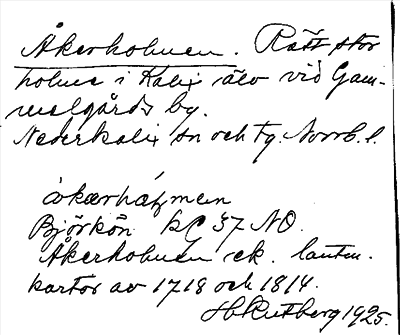 Åkerholmen. Rätt stor
holme i Kalix älv vid Gam-
melgårds by.
Nederkalix sn och tg. Norrb. l.
Björkön kC 37 NO.
Åkerholmen ek. lantm.
kartor av 1718 och 1814.
H Rutberg 1925.